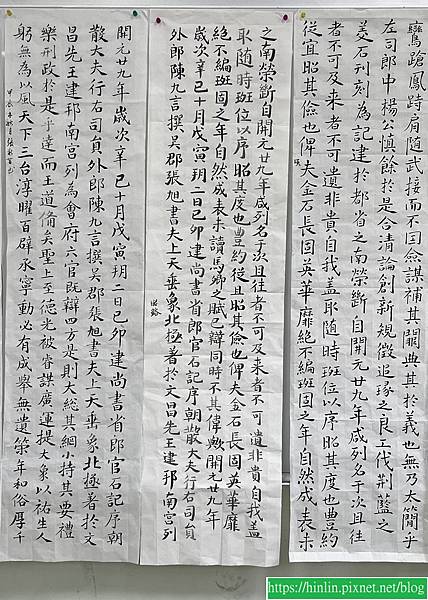 鸞蹌鳳跱肩随武接而不因僉謀補其闕典其於義也無乃太簡乎
左司郎中楊公慎餘於是合清論創新規徵追琢之良工伐荆藍之
美石刊刻為記建於都省之南榮斷自開元廿九年咸列名于次且往
者不可及来者不可遺非貴自我盖取随時班位以序昭其度也豊約
從宜昭其儉也俾夫金石長固英華靡絶不編班固之年自然成表未
之南榮斷自開元廿九年咸列名于次且往者不可及来者不可遺非貴自我盖
取随時班位以序昭其度也豊約從且昭其儉也俾夫金石長固英華靡
絶不編班固之年自然成表未讀馬卿之賦已辯同時不其偉歟開元廿九年
歲次辛已十月戊寅朔二日己卯建尚書省郎官石記序朝散大夫行右司員
外郎陳九言撰吳郡張旭書夫上天垂象北極著於文昌先王建邦南宮列
開元廿九年歲次辛已十月戊寅朔二日己卯建尚書省郎官石記序朝
散大夫行右司員外郎陳九言撰吳郡張旭書夫上天垂象北極著於文
昌先王建邦南宮列為會府六官既辯四方是則大総其綱小持其要禮
樂刑政於是乎達而王道備矣聖上至德光被睿謀廣運提大象以祐生人
躬無為以風天下三台淳曜百辟承寧動必有成舉無遺策年和俗厚千
甲辰年
https://hinlin.pixnet.net/blog